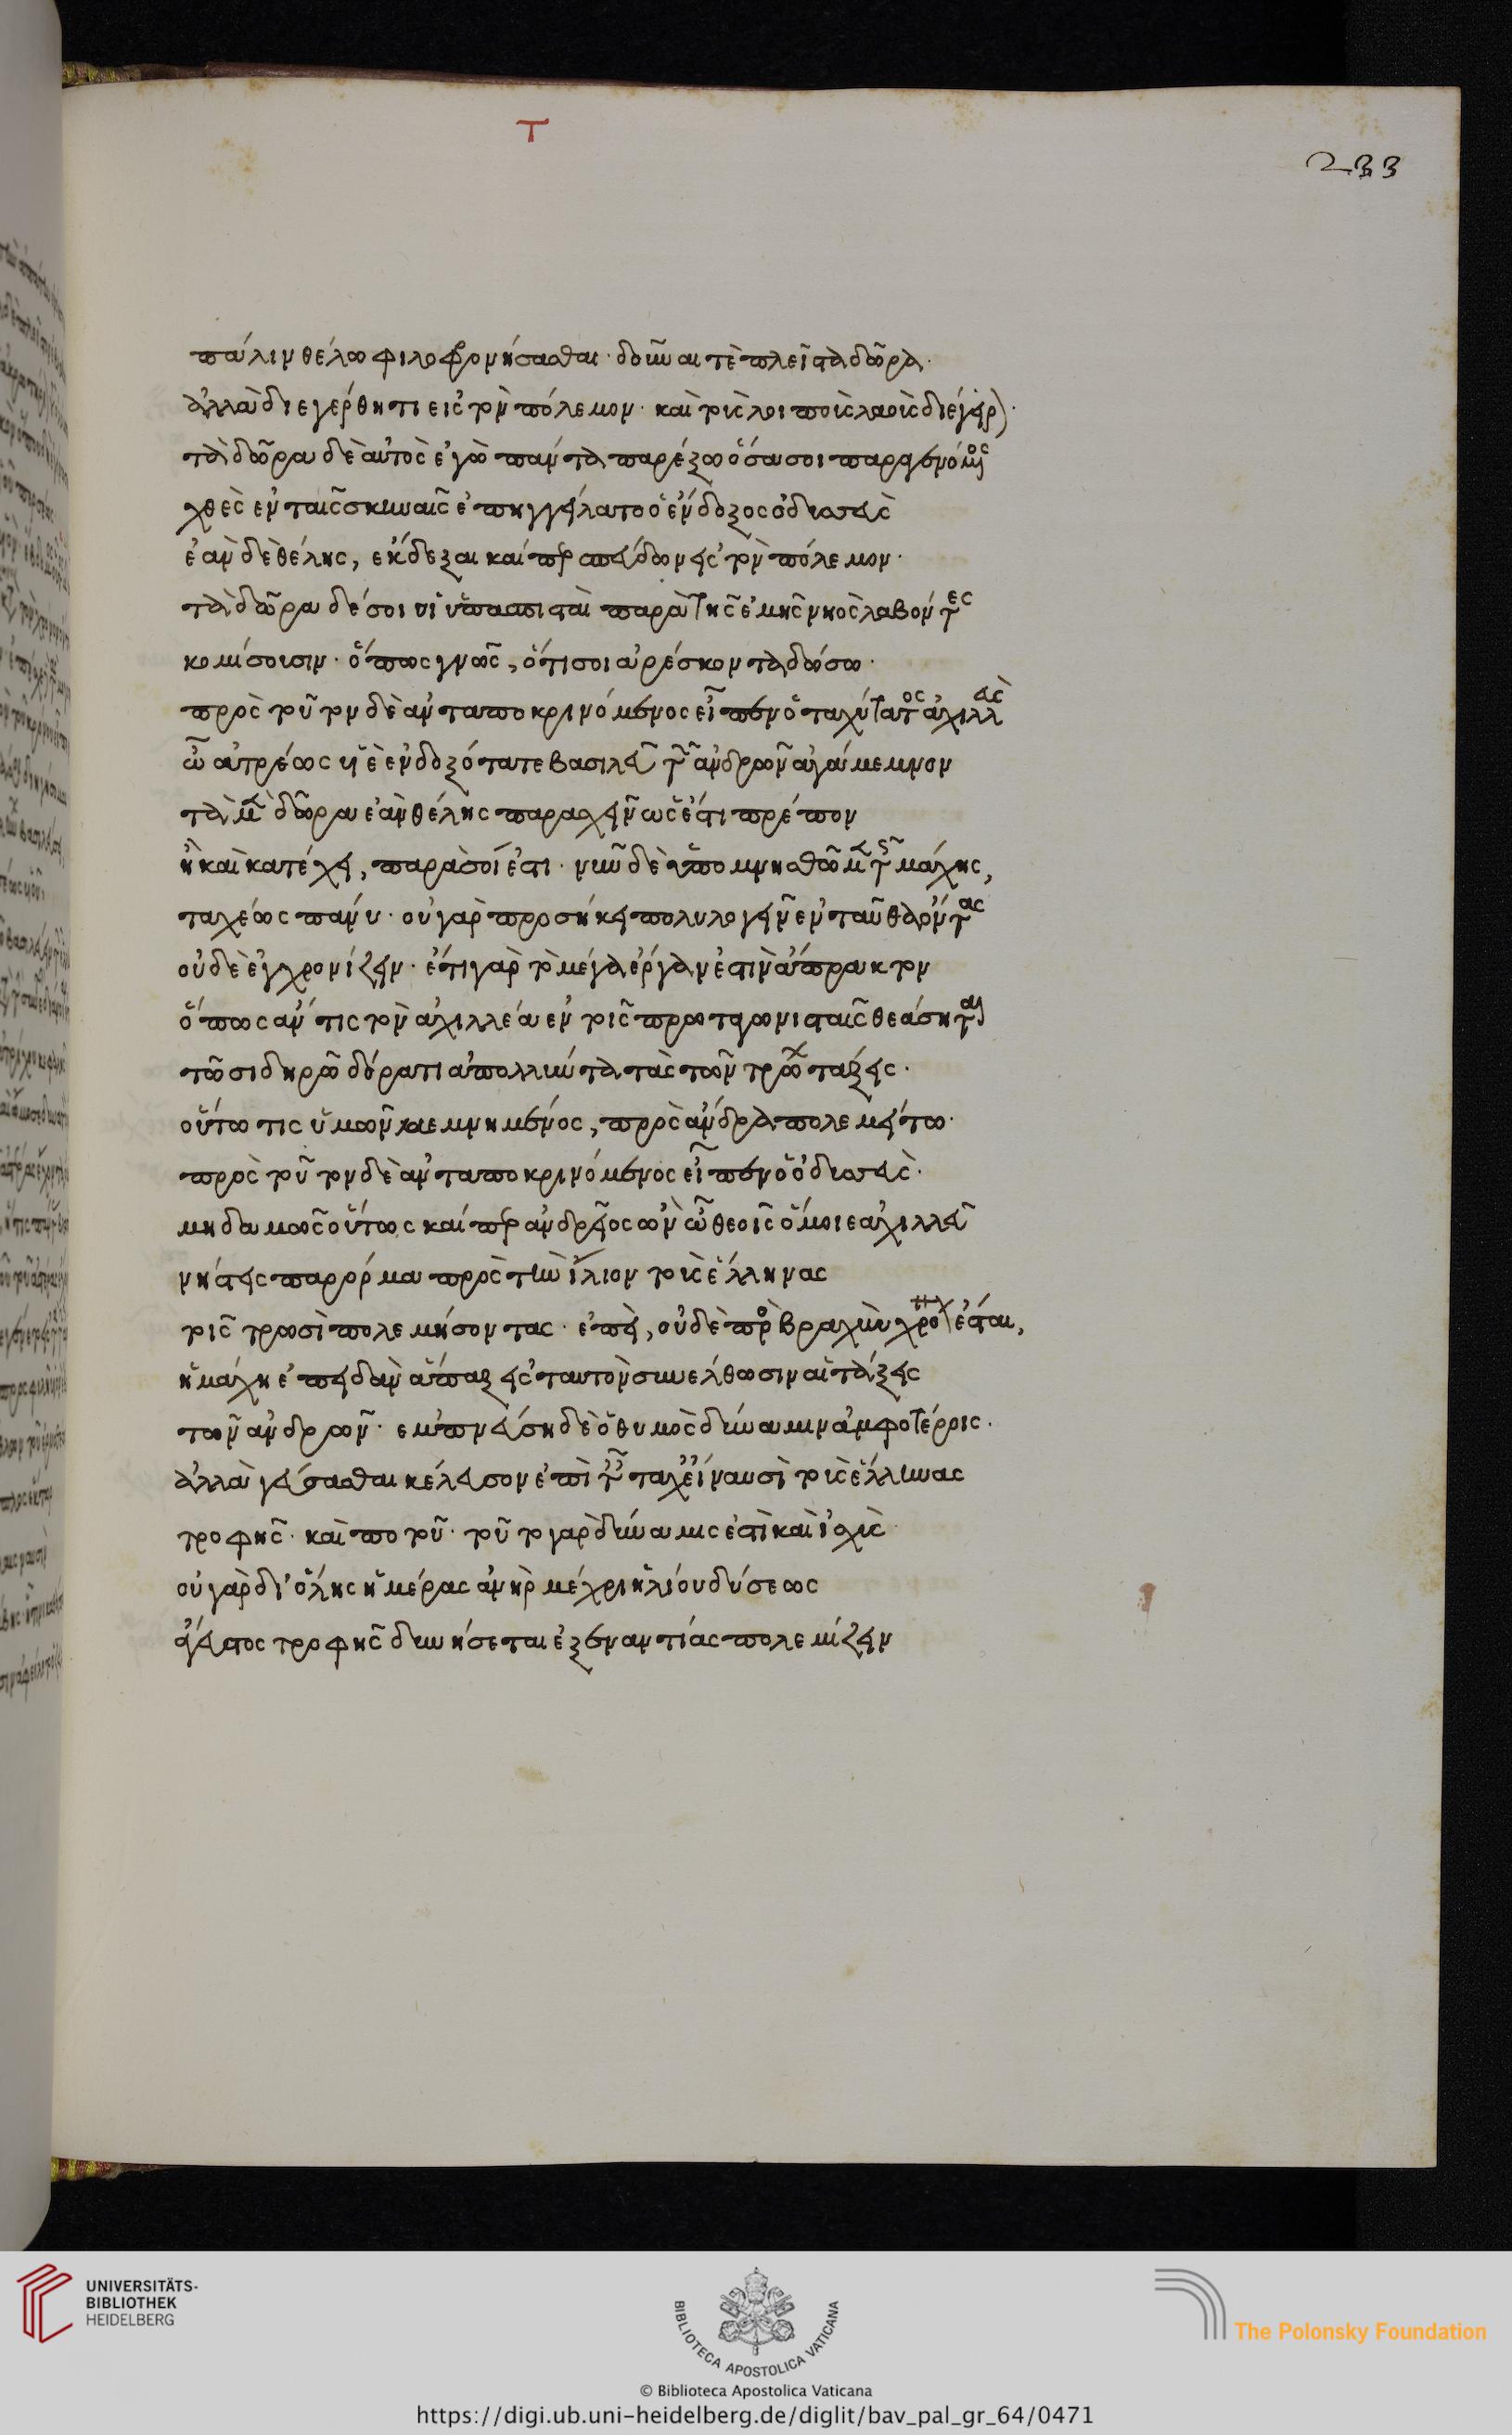 Τ
233
πάλιν θέλω φιλοφρονήσασθαι· δοῦναι τὲ πλεῖστα δῶρα·
ἀλλὰ διεγέρθητι εἰς τὸν πόλεμον· καὶ τοὺς λοιποὺς λαοὺς διέγειρ)·
τὰ δῶρα δὲ αὐτὸς ἐγὼ πάντα παρέξω ὅσα σοι παραγενόμενος
χθὲς ἐν ταῖς σκηναῖς ἐπηγγείλατο ὁ ἔνδοξος ὀδυσσεὺς
ἐὰν δὲ θέλης, ἔκδεξαι καίπερ σπεύδων εἰς τὸν πόλεμον·
τὰ δῶρα δέ σοι οἱ ὑπασπισταὶ παρὰ τῆς ἐμῆς νηὸς λαβόντες
κομίσουσιν· ὅπως γνῶς, ὅτι σοι ἀρέσκοντα δώσω·
πρὸς τοῦτον δὲ ἀνταποκρινόμενος εἶπεν ὁ ταχύτατος ἀχιλλεὺς
ὦ ἀτρέως υἱὲ ἐνδοξότατε βασιλεῦ τῶν ἀνδρῶν ἀγάμεμνον
τὰ μὲν δῶρα ἐὰν θέλης παρασχεῖν ὡς ἐστι πρέπον
ἢ καὶ κατέχειν, παρὰ σοί ἐστι· νῦν δὲ ὑπομνησθῶμεν τῆς μάχης,
ταχέως πάνυ· οὐ γὰρ προσήκει πολυλογεῖν ἐνταῦθα ὄντας
οὐδὲ ἐγχρονίζειν· ἔτι γὰρ τὸ μέγα ἔργον ἐστὶν ἄπρακτον
ὅπως ἄν τις τὸν ἀχιλλέα ἐν τοῖς πρωταγωνισταῖς θεάσηται
τῶ σιδηρῶ δόρατι ἀπολλύντα τὰς τῶν τρώων τάξεις·
οὕτω τις ὑμῶν μεμνημένος, πρὸς ἄνδρα πολεμείτω·
πρὸς τοῦτον δὲ ἀνταποκρινόμενος εἶπεν ὁ ὀδυσσεύς·
μηδαμῶς οὕτως καίπερ ἀνδρεῖος ὢν ὦ θεοῖς ὅμοιε ἀχιλλεῦ
νήστεις παρόρμα πρὸς τὴν ἴλιον τοὺς ἕλληνας
τοῖς τρωσὶ πολεμήσοντας· ἐπεὶ, οὐδὲ πρὸς βραχὺν χρόνον ἔσται,
ἡ μάχη ἐπειδὰν ἅπαξ εἰς ταυτὸν συνέλθωσιν αἱ τάξεις
τῶν ἀνδρῶν· ἐμπνεύση δὲ ὁ θυμὸς δύναμιν ἀμφοτέροις·
ἀλλὰ γεύσασθαι κέλευσον ἐπὶ ταῖς ταχείαις ναυσὶ τοὺς ἕλληνας
τροφῆς· καὶ ποτοῦ· τοῦτο γὰρ δύναμις ἐστὶ καὶ ἰσχὺς·
οὐ γὰρ δι' ὅλης ἡμέρας ἀνὴρ μέχρι ἡλίου δύσεως
ἄγευστος τροφῆς δυνήσεται ἐξεναντίας πολεμίζειν
UNIVERSITÄTS-
BIBLIOTHEK
HEIDELBERG
BIBLIOTECA APOSTOLICA VATICANA
The Polonsky Foundation
© Biblioteca Apostolica Vaticana
https://digi.ub.uni-heidelberg.de/diglit/bav_pal_gr_64/0471